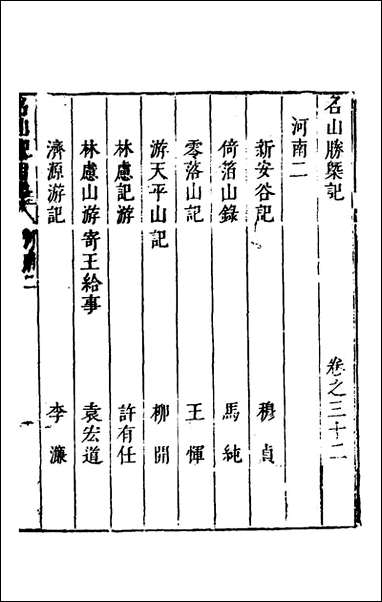 名山勝槩記 卷之三十二
河南二
新安谷記 穆員
倚箔山錄 馬純
零落山記 王惲
游天平山記 柳開
林慮記游 許有壬
林慮山游寄王給事 袁宏道
濟源游記 李濂